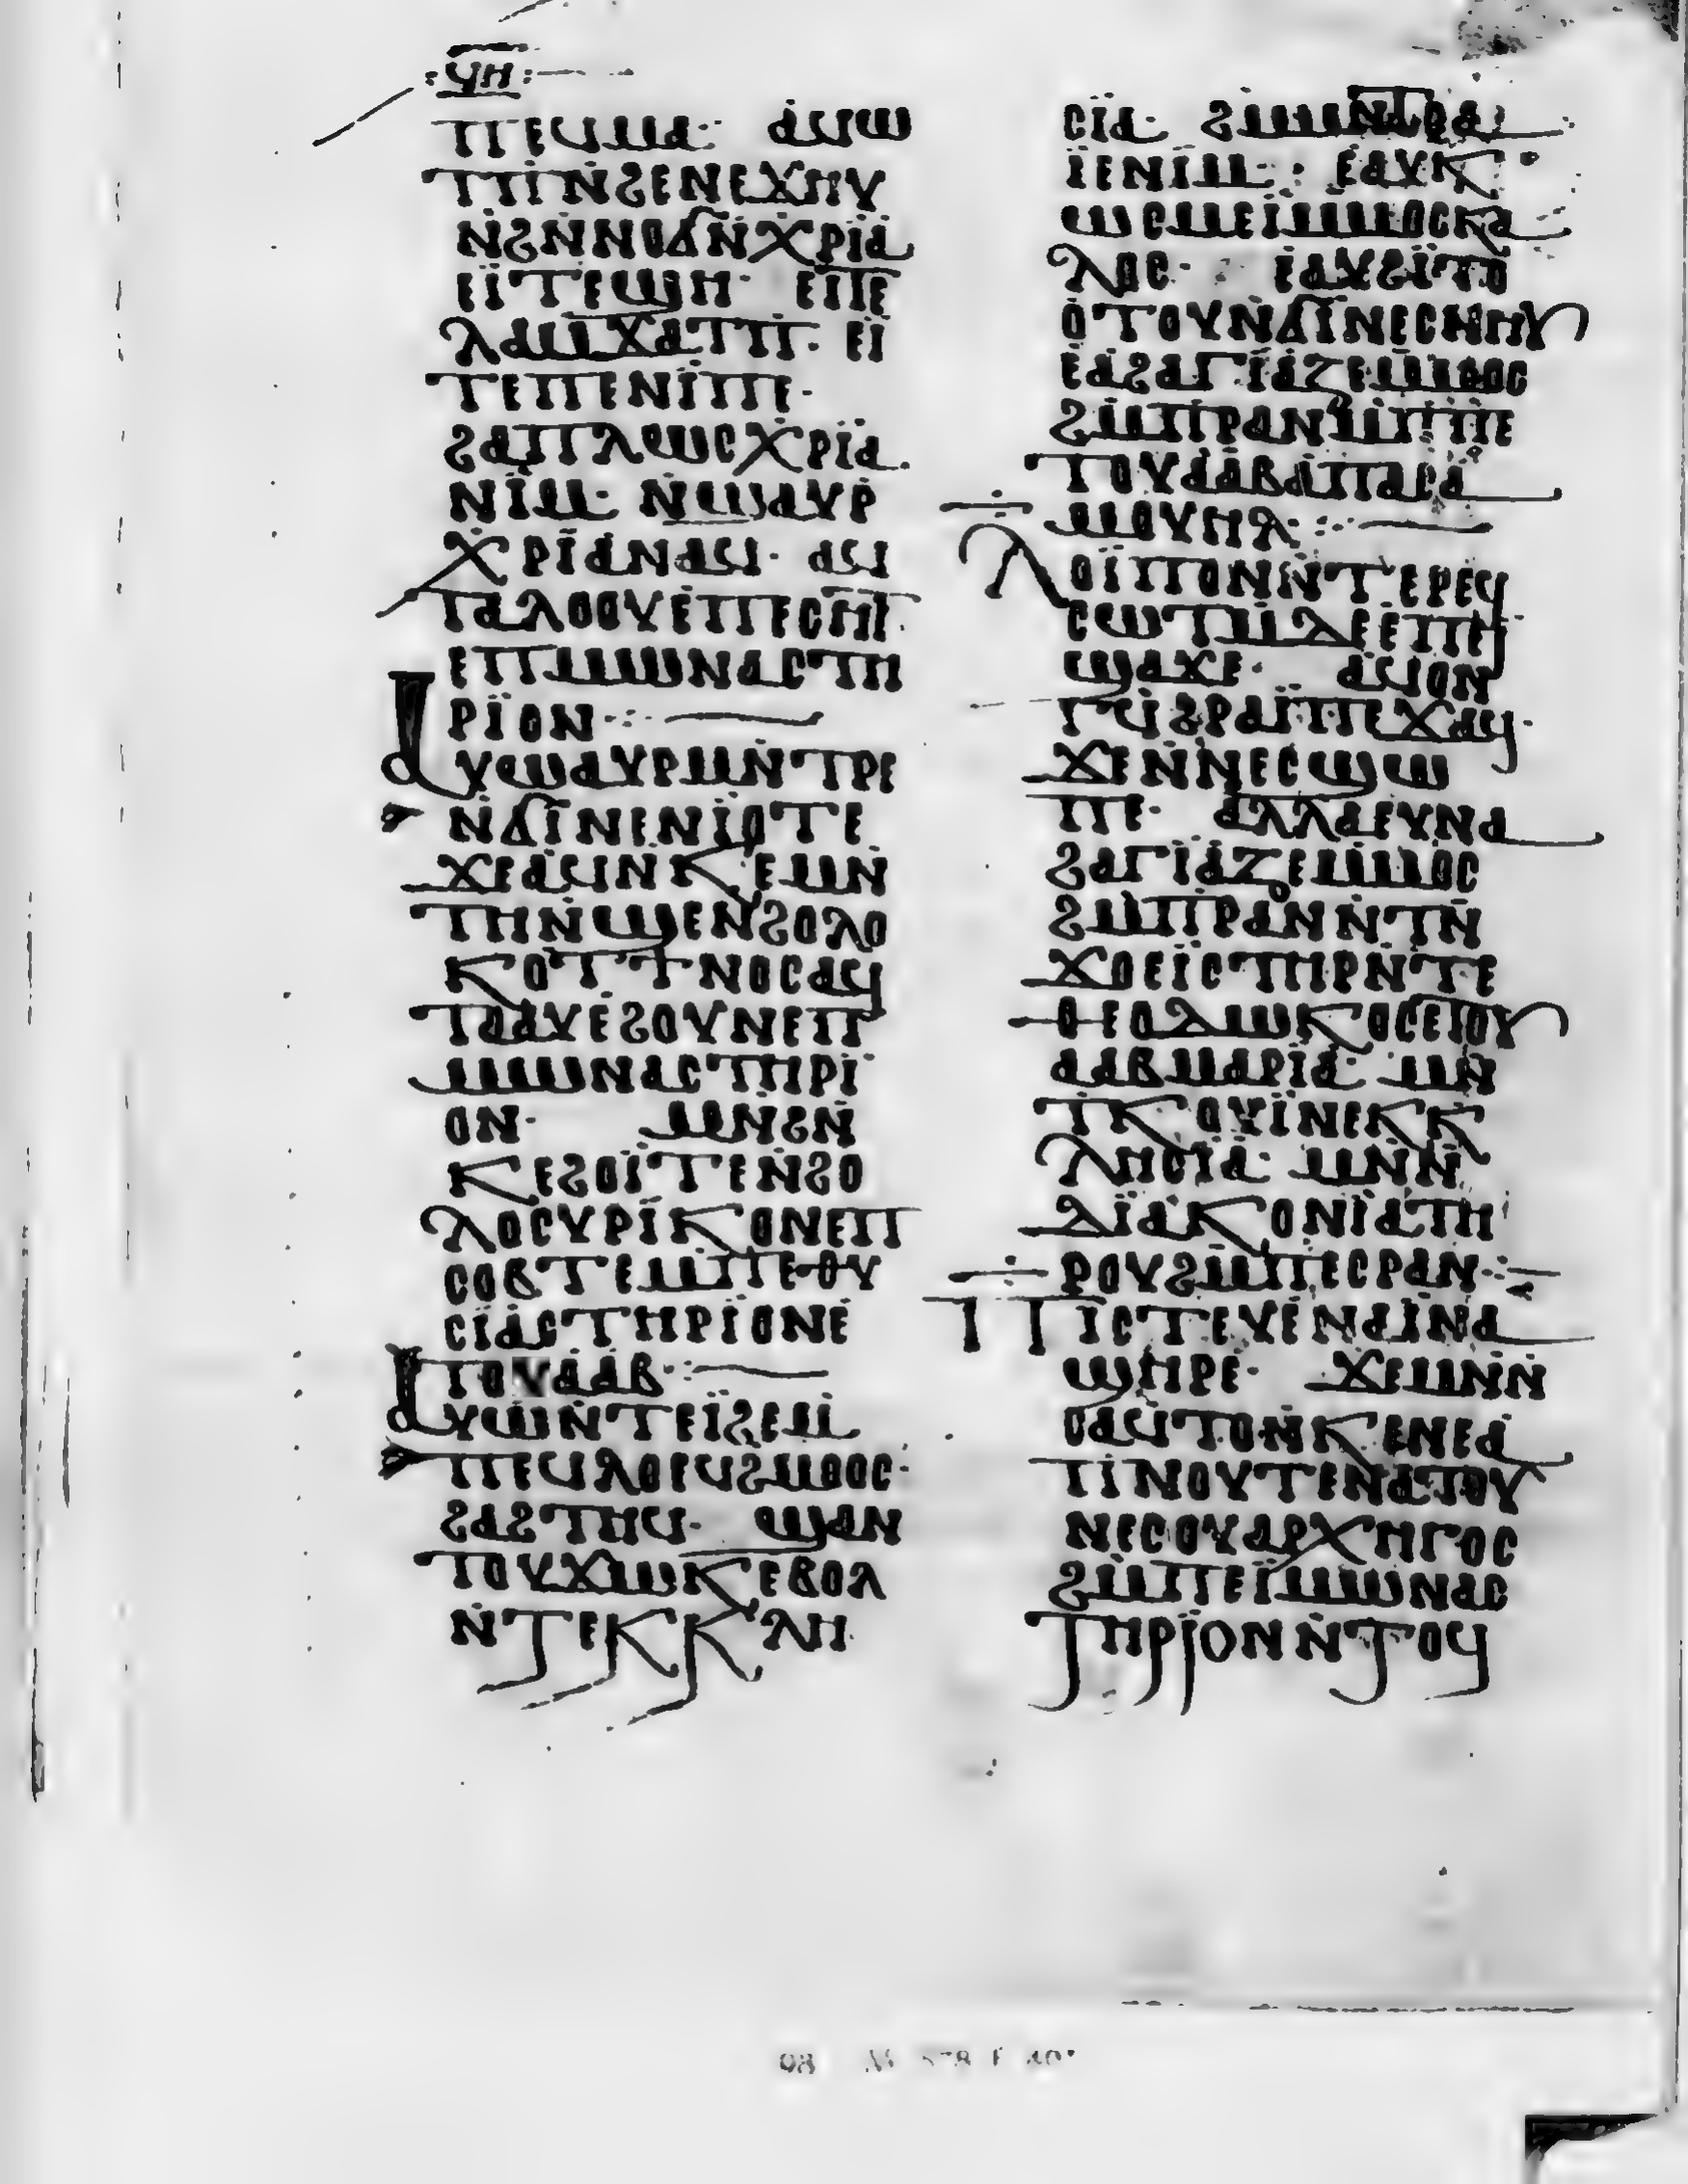 ϥⲏ
ⲡⲉϥⲙⲁ· ⲁϥⲱ
ⲡⲓⲛ̇ϩⲉⲛⲉϫⲏⲩ
ⲛ̇ϩⲛ̇ⲛⲟϭⲛ̇ⲭⲣⲓ̈ⲁ
ⲉⲓ̈ⲧⲉϣⲏ· ⲉⲓⲧⲉ
ⲗⲁⲙϫⲁⲧⲡ· ⲉⲓ̈
ⲧⲉⲡⲉⲛⲓ̈ⲡⲉ·
ϩⲁⲡⲗⲱⲥⲭⲣⲓ̈ⲁ
ⲛⲓ̈ⲙ· ⲛ̇ϣⲁⲩⲣ̇
ⲭⲣⲓ̈ⲁⲛⲁϥ· ⲁϥ
ⲧⲁⲗⲟⲟⲩⲉⲡⲉⲥⲏⲧ
ⲉⲡⲙⲙⲱⲛⲁⲥⲧⲏ
ⲣⲓ̈ⲟⲛ·
ⲁⲩⲱⲁⲩⲣⲙⲛ̇ⲧⲣⲉ
ⲛ̇ϭⲓ̈ⲛⲉⲛⲓ̈ⲟⲧⲉ
ϫⲉⲁϥⲛ̇ⲕⲉⲙⲛ̇
ⲧⲏⲛ̇ϣⲉⲛϩⲟⲗⲟ
ⲕⲟⲧⲧⲛⲟⲥⲁϥ
ⲧⲟⲁⲩⲉϩⲟⲩⲛⲉⲡ
ⲙⲙⲱⲛⲁⲥⲧⲏⲣⲓ̈
ⲟⲛ· ⲙⲛ̇ϩⲛ̇
ⲕⲉϩⲟⲓ̈ⲧⲉⲛ̇ϩⲟ
ⲗⲟⲥⲩⲣⲓ̈ⲕⲟⲛⲉⲡ
ⲥⲟⲃⲧⲉⲙⲡⲉⲑⲩ
ⲥⲓ̈ⲁⲥⲧⲏⲣⲓ̈ⲟⲛⲉ
ⲧⲟⲩⲁⲁⲃ·
ⲁⲩⲱⲛ̇ⲧⲉⲓ̈ϩⲉⲙ̇
ⲡⲉϥⲗⲟⲓϥϩⲙⲟⲟⲥ·
ϩⲁϩⲧⲏϥ· ϣⲁⲛ
ⲧⲟⲩϫⲱⲕⲉⲃⲟⲗ
ⲛ̇ⲧⲉⲕⲕⲗⲏ
ⲥⲓ̈ⲁ· ϩⲙⲙⲛⲧⲣⲁ
ⲓ̈ⲉⲛⲓ̈ⲙ· ⲉⲁⲩⲕ
ⲱⲥⲙⲉⲓ̈ⲙⲙⲟⲥⲕⲁ
ⲗⲟⲥ· ⲉⲁⲩϩⲓ̈ⲧⲟ
ⲟⲧⲟⲩⲛ̇ϭⲓ̈ⲛⲉⲥⲛⲏⲩ
ⲉⲁϩⲁⲅⲓ̈ⲁⲍⲉⲙⲙⲟⲥ
ϩⲙⲡⲣⲁⲛⲙ̇ⲡⲡⲉ
ⲧⲟⲩⲁⲁⲃⲁⲡⲁⲥⲁ
ⲙⲟⲩⲏⲗ·
ⲗⲟⲓ̈ⲡⲟⲛⲛ̇ⲧⲉⲣⲉϥ
ⲥⲱⲧⲙⲇⲉⲉⲡⲉⲓ̈
ϣⲁϫⲉ· ⲁϥⲟⲛ
ⲅϥϩⲣⲁⲓ̈ⲡⲉϫⲁϥ·
ϫⲉⲛ̇ⲛⲉⲥϣⲱ
ⲡⲉ· ⲁⲗⲗⲁⲉⲩⲛⲁ
ϩⲁⲅⲓ̈ⲁⲍⲉⲙⲙⲟⲥ
ϩⲙⲡⲣⲁⲛⲛ̇ⲧⲛ̇
ϫⲟⲉⲓ̈ⲥⲧⲏⲣⲛ̇ⲧⲉ
ⲑⲉⲟⲇⲱⲕⲟⲥⲉⲧⲟⲩ
ⲁⲁⲃⲙⲁⲣⲓ̈ⲁ· ⲙⲛ
ⲧⲕⲟⲩⲓ̈ⲛⲉⲕⲕ
ⲗⲏⲥⲓ̈ⲁ· ⲙⲛ̇ⲛ̇
ⲇⲓ̈ⲁⲕⲟⲛⲓ̈ⲁⲧⲏ
ⲣⲟⲩϩⲙⲡⲉⲥⲣⲁⲛ·
ⲡⲓⲥⲧⲉⲩⲉⲛⲁⲓ̈ⲛⲁ
ϣⲏⲣⲉ· ϫⲉⲙⲛ̇ⲛ̇
ⲥⲁϥⲧⲟⲛ̇ⲕⲉⲛⲉⲁ
ⲡⲓⲛⲟⲩⲧⲉⲛⲁⲧⲟⲩ
ⲛⲉⲥⲟⲩⲁⲣⲭⲏⲅⲟⲥ
ϩⲙⲡⲉⲓ̈ⲙⲙⲱⲛⲁⲥ
ⲧⲏⲣⲓ̈ⲟⲛⲛ̇ⲧⲟϥ